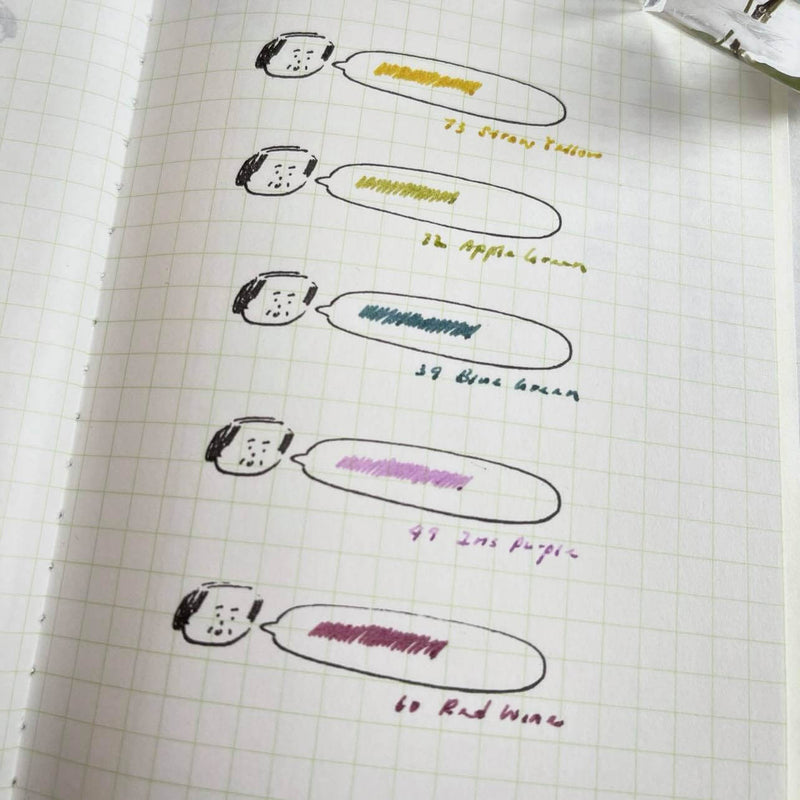 73 Straw Yellow
32 Apple Green
39 Blue Green
49 Iris Purple
60 Red Wine